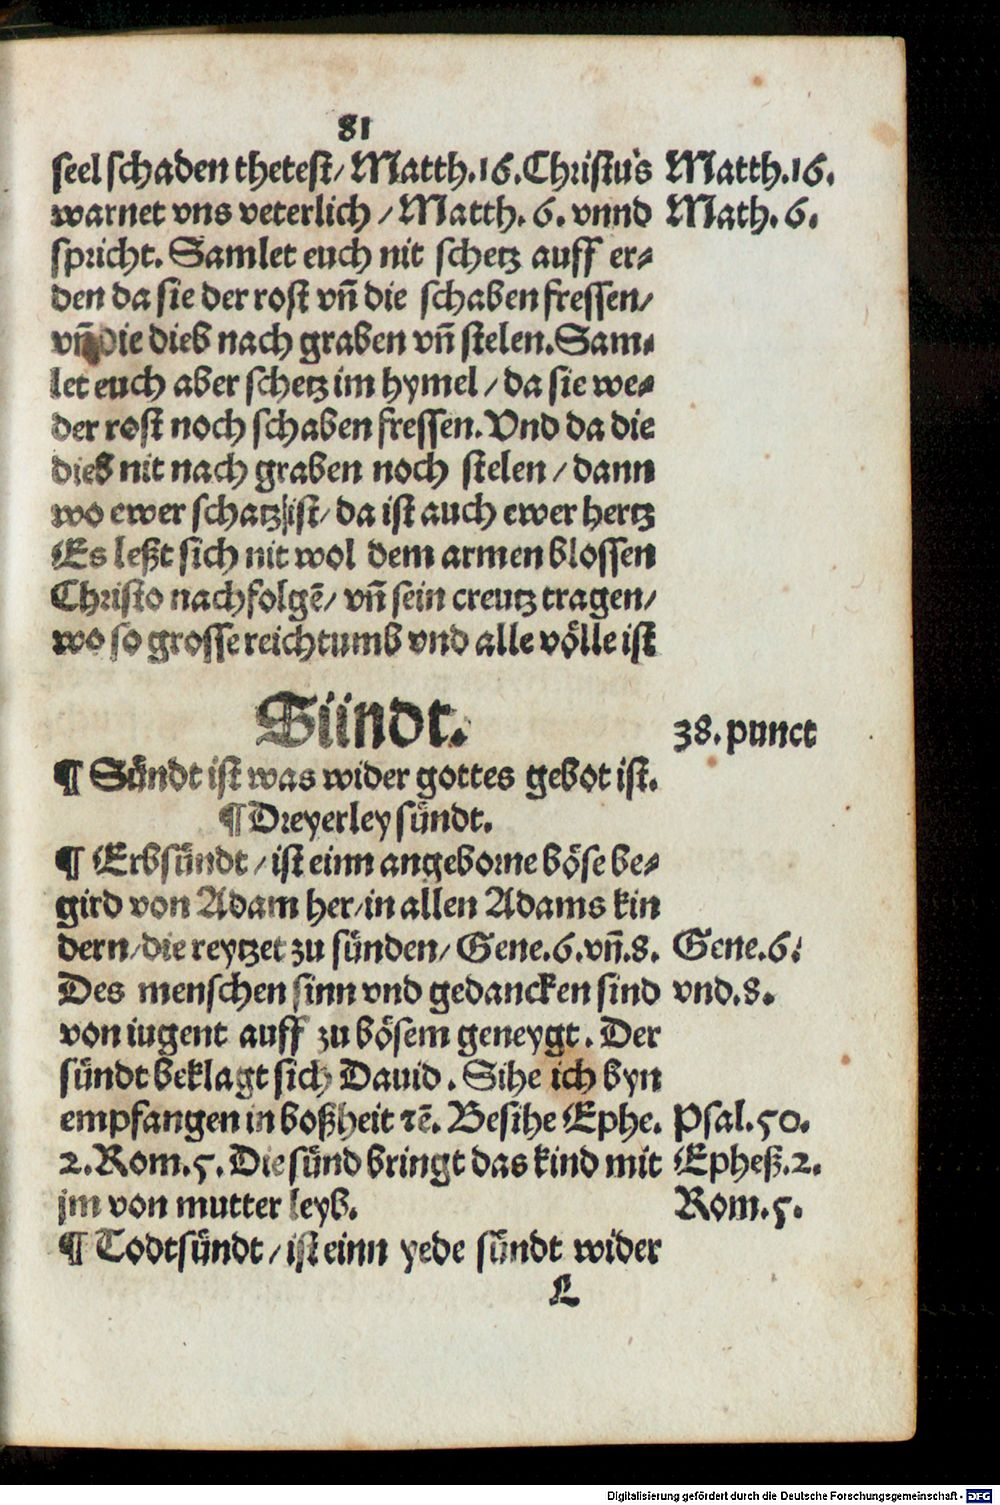 81
seel schaden thetest/ Matth.16. Christus Matth.16.
warnet vns veterlich / Matth. 6. vnnd Math. 6.
spricht. Samlet euch nit schetz auff er⸗
den da sie der rost vñ die schaben fressen/
vñ die dieb nach graben vñ stelen. Sam⸗
let euch aber schetz im hymel / da sie we⸗
der rost noch schaben fressen. Vnd da die
dieb nit nach graben noch stelen / dann
wo ewer schatz ist/ da ist auch ewer hertz
Es leßt sich nit wol dem armen blossen
Christo nachfolgē/ vñ sein creutz tragen/
wo so grosse reichtumb vnd alle völle ist
Sündt. 38. punct
¶ Sündt ist was wider gottes gebot ist.
¶ Dreyerley sündt.
¶ Erbsündt / ist einn angeborne böse be⸗
gird von Adam her/ in allen Adams kin
dern/ die reytzet zu sünden/ Gene.6. vñ.8. Gene.6.
Des menschen sinn vnd gedancken sind vnd.8.
von iugent auff zu bösem geneygt. Der
sündt beklagt sich Dauid. Sihe ich byn
empfangen in boßheit ꝛē. Besihe Ephe. Psal.50.
2. Rom.5. Die sünd bringt das kind mit Epheß.2.
jm von mutter leyb. Rom.5.
¶ Todtsündt / ist einn yede sündt wider
L
Digitalisierung gefördert durch die Deutsche Forschungsgemeinschaft - DFG